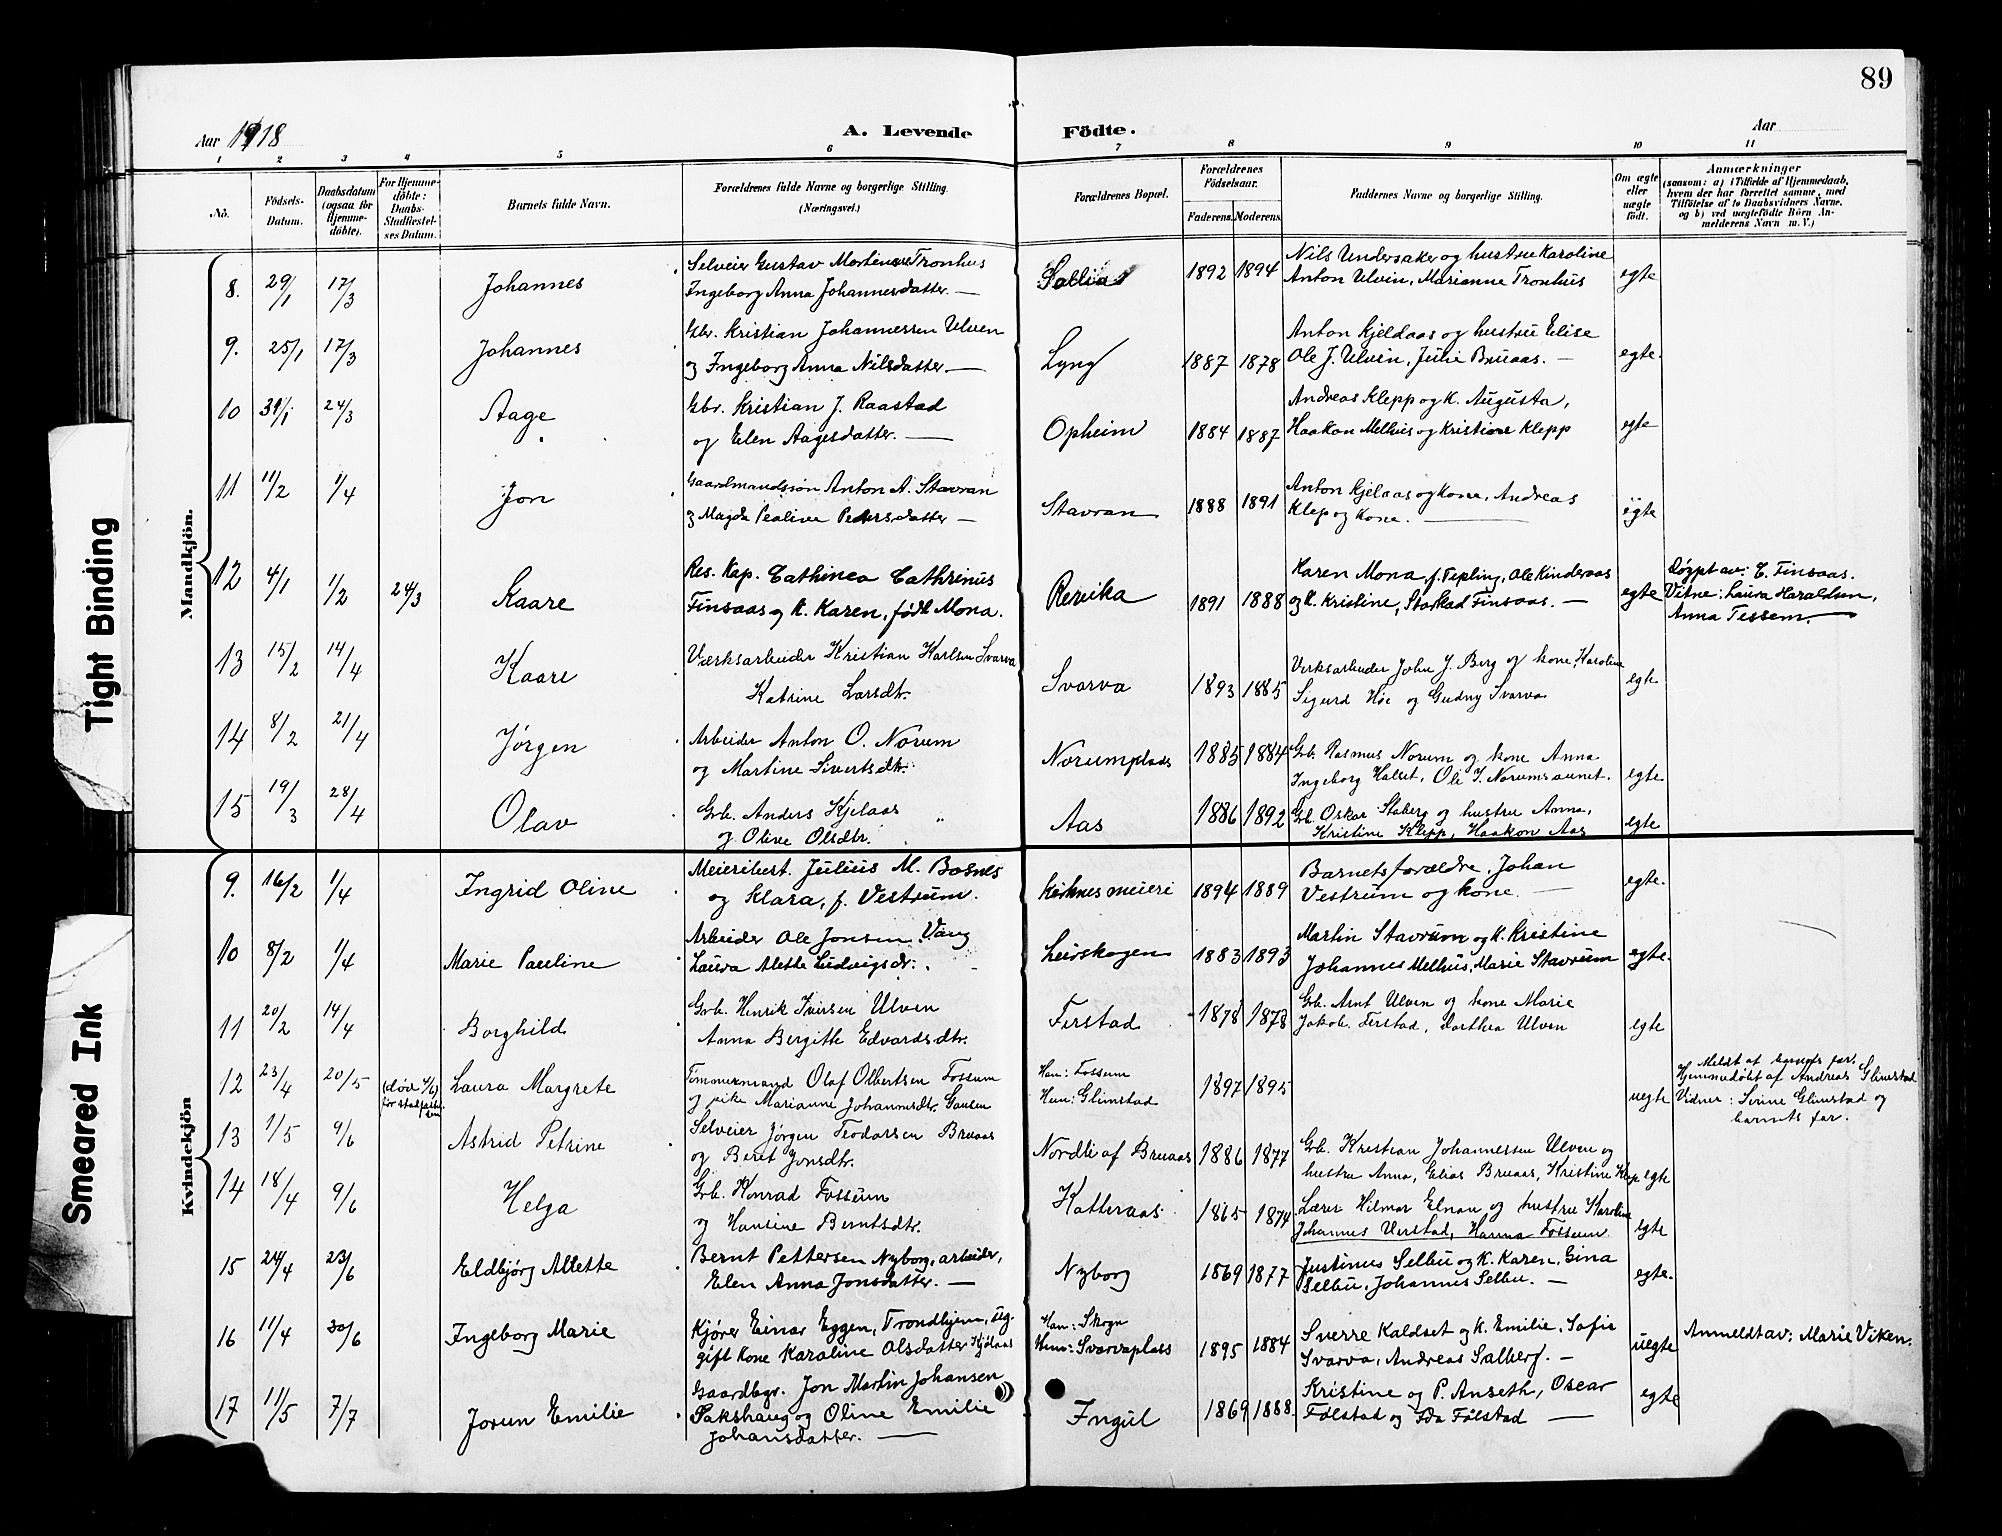 89
Aar 1918
A. Levende Födte.
Aar
1 2 3 4 5 6 7 8 9 10 11
Nō.
Födsels-Datum.
Daabsdatum (ogsaa for Hjemme-döbte).
For Hjemme-döbte: Daabs-Stadfæstel-ses Datum.
Barnets fulde Navn.
Forældrenes fulde Navne og borgerlige Stilling. (Næringsvei.)
Forældrenes Bopæl.
Forældrenes Födselsaar.
Faderens. Moderens.
Faddernes Navne og borgerlige Stilling.
Om ægte eller uægte födt.
Anmærkninger
(saasom: a) i Tilfælde af Hjemmedaab, hvem der har forrettet samme, med Tilföielse af to Daabsvidners Navne, og b) ved uægtefödte Börn An-melderens Navn m. V.)
Mandkjön.
8. 29/1 17/3 Johannes
Selveier Gustav Tronhus
Ingeborg Anna Johannesdatter. —
1892 1894
Nils Undersaker og hustru Karoline
Anton Ulvin, Marianne Tronhus
egte
9. 25/1 17/3 Johannes
Gbr. Kristian Johannessen Ulven
og Ingeborg Anna Nilsdatter. —
Lyng 1887 1878
Anton Kjeldaas og hustru Elise
Ole J. Ulvin, Julie Bruaas. —
egte.
10 31/1 24/3 Aage
Gbr. Kristian J. Raastad
og Elen Aagesdatter. —
Opheim 1884 1887
Andreas Klepp og K. Augusta,
Haakon Melhus og Kristine Klepp
egte
11 11/2 1/4 Jon
Gaardmandssøn Anton A. Stavran
og Magda Pedersdatter —
Stavran 1888 1891
Anton Kjelaas og Kone, Andreas
Klep og Kone. —
egte
12 4/1 1/2 24/3 Kaare
Res. Kap. Cathinco Cathrinus
Finsaas og K. Karen, født Mona.
Reevika 1891 1888
Karen Mona, f. Tepling, Ole Kinderaas
og K. Kristine, Starkad Finsaas. —
egte
Døpt av: C. Finsaas.
Vitne: Laura Haraldsen,
Anna Tessem. —
13 15/2 14/4 Kaare
Værksarbeider Kristian Karlsen Svarva
Katrine Larsdtr.
Svarva 1893 1885
Verksarbeider John J. Berg og kone, Karoline
Sigurd Høe og Gudny Svarva
egte
14 8/2 21/4 Jørgen
Arbeider Anton O. Norum
og Martine Sivertsdtr.
Norumplads 1885 1884
Grb. Rasmus Norum og kone Anna
Ingeborg Halset, Ole J. Norumsaunet.
egte
15 19/3 28/4 Olav
Grb. Anders Kjelaas
og Olive Olsdtr.
Aas 1886 1892
Grb. Oskar Staberg og hustru Anna,
Kristine Klepp, Haakon Aas
egte
Kvindekjön
9. 16/2 1/4 Ingrid Oline
Meieribest. Julius M. Bosnes
og Klara, f. Vestrum.
Kirknes meieri 1894 1889
Barnets forældre, Johan
Vestrum og kone. —
egte.
10 8/2 1/4 Marie Pauline
Arbeider Ole Jonsen Vang
Laura Alette Ludvigsdr.
Leirskogen 1883 1893
Martin Stavrum og K. Kristine
Johannes Melhus, Marie Stavrum
egte.
11 20/2 14/4 Borghild
Grb. Henrik Iversen Ulven
Anna Bergitte Edvardsdtr.
Ferstad 1878 1878
Grb. Arnt Ulven og kone Marie
Jakob Ferstad, Dorthea Ulven
egte
12 23/4 20/5 (død 4/6) før Laura Margrete
Tømmermand Olaf Olbertsen Fossum
og pike Marianne Johannesdtr.
Han: Fossum
Hun: Glimstad
1897 1895
uegte
Meldt af barnets far.
Hjemmedøbt af Andreas Glimstad
Vidner: Sirine Glimstad og
barnets far.
13 1/5 9/6 Astrid Petrine
Selveier Jørgen Teodorsen Bruaas
og Beret Jonsdtr.
Nordli af Bruaas 1886 1877
Grb. Kristian Johannessen Ulven og
hustru Anna, Elias Bruaas, Kristine Klep
egte
14 18/4 9/6 Helga
Grb. Konrad Fossum
og Hansine Berntsdtr.
Katteraas 1865 1874
Lærer Hilmar Elnan og hustru Karoline
Johannes Verstad, Hanna Fossum
egte
15 24/4 23/6 Eldbjørg Alette
Bernt Pettersen Nyborg, arbeider,
Elen Anna Jonsdatter. —
Nyborg 1869 1877
Justinus Selbu og K. Karen, Gina
Selbu, Johannes Selbu. —
egte.
16 11/4 30/6 Ingeborg Marie
Kjører Einar Eggen, Trondhjem, ug.
gift Kone Karoline Olsdatter Kjølaas
Han: Skogn
Hun: Svarvaplass
1895 1884
Sverre Kaldset og K. Emilie, Sofie
Svarva, Andreas Salberg. —
uegte
Anmeldt av: Marie Viken.
17 11/5 7/7 Jorun Emilie
Gaardbgr. Jon Martin Johansen
Pakshaug og Oline Emilie
Johansdatter. —
Ingul 1869 1888.
Kristine og P. Anseth, Oscar
Følstad og Ida Følstad —
egte
Tight Binding
Smeared Ink